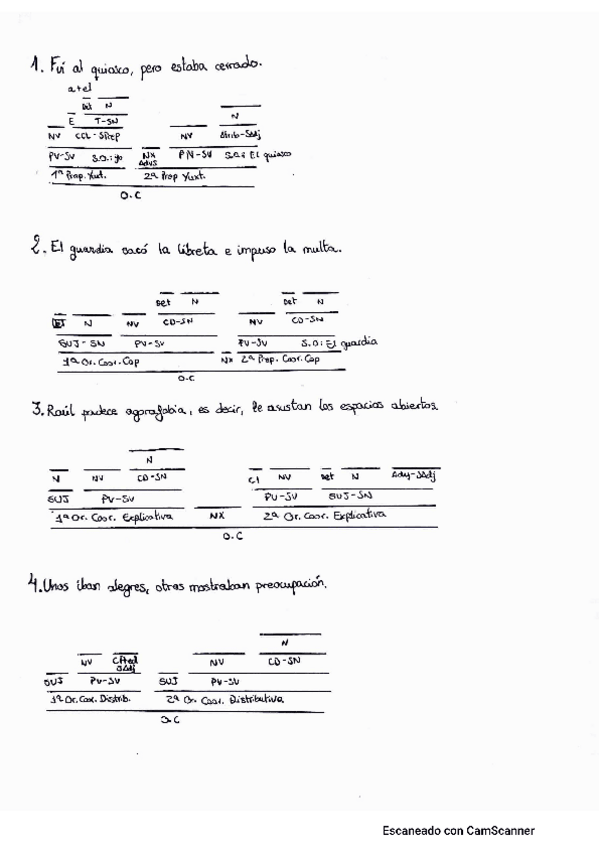 1. Fui al quiosco, pero estaba cerrado.
a+el
Det N
E T-SN N
NV CCL-SPrep NV Atrib-SAdj
PV-SV S.O: yo NX ADVS PN-SV S.O: El quiosco
1ª Prop. Yuxt. 2ª Prop Yuxt.
O.C
2. El guardia sacó la libreta e impuso la multa.
Det N Det N
DET N NV CD-SN NV CD-SN
SUJ-SN PV-SV PV-SV S.O: El guardia
1ª Or. Coor. Cop NX 2ª Prop. Coor. Cop
O.C
3. Raúl padece agorafobia, es decir, le asustan los espacios abiertos.
N
N NV CD-SN CI NV Det N Ady-SAdj
SUJ PV-SV PV-SV SUJ-SN
1ª Or. Coor. Explicativa NX 2ª Or. Coor. Explicativa
O.C
4. Unos iban alegres, otros mostraban preocupación.
N
NV CPred SAdj NV CD-SN
SUJ PV-SV SUJ PV-SV
1ª Or. Coor. Distrib. 2ª Or. Coor. Distributiva.
O.C
Escaneado con CamScanner